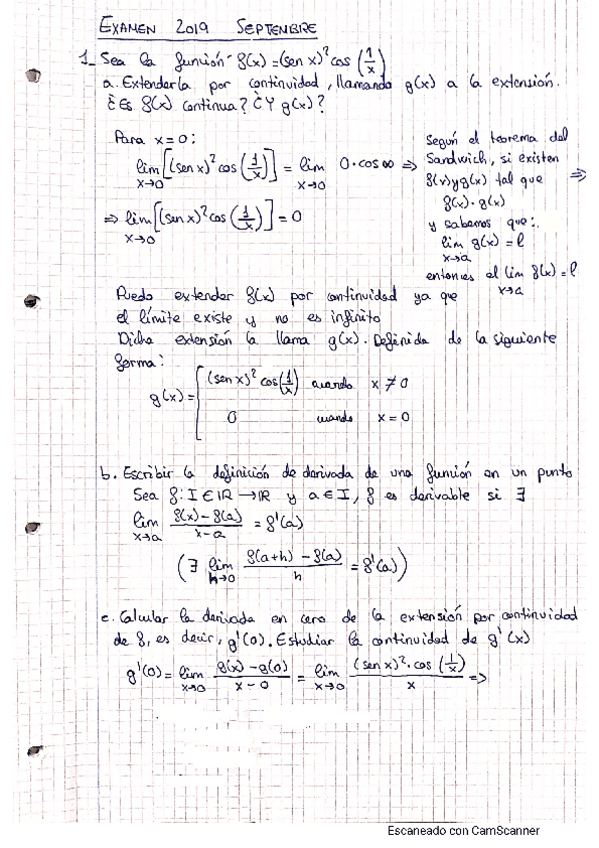 EXAMEN 2019 SEPTEMBRE
1_ Sea la función f(x) = (sen x)² cos (1/x)
a. Extenderla por continuidad, llamando g(x) a la extensión.
¿Es f(x) continua? ¿Y g(x)?
Para x=0:
lim x→0 [(sen x)² cos (1/x)] = lim x→0 0·cos ∞ ⇒
⇒ lim x→0 [(sen x)² cos (1/x)] = 0
Según el teorema del
Sandwich, si existen
f(x) y g(x) tal que ⇒
f(x)·g(x)
y sabemos que:
lim x→a g(x) = l
entonces el lim x→a f(x) = l
Puedo extender f(x) por continuidad ya que
el límite existe y no es infinito
Dicha extensión la llama g(x). Definida de la siguiente
forma:
g(x) = { (sen x)² cos (1/x) cuando x ≠ 0
0 cuando x = 0
b. Escribir la definición de derivada de una función en un punto
Sea f: I ∈ ℝ → ℝ y a ∈ I, f es derivable si ∃
lim x→a (f(x) - f(a))/(x-a) = f'(a)
(∃ lim h→0 (f(a+h) - f(a))/h = f'(a))
c. Calcular la derivada en cero de la extensión por continuidad
de f, es decir, g'(0). Estudiar la continuidad de g'(x)
g'(0) = lim x→0 (g(x) - g(0))/(x - 0) = lim x→0 ((sen x)² · cos (1/x))/x ⇒
Escaneado con CamScanner